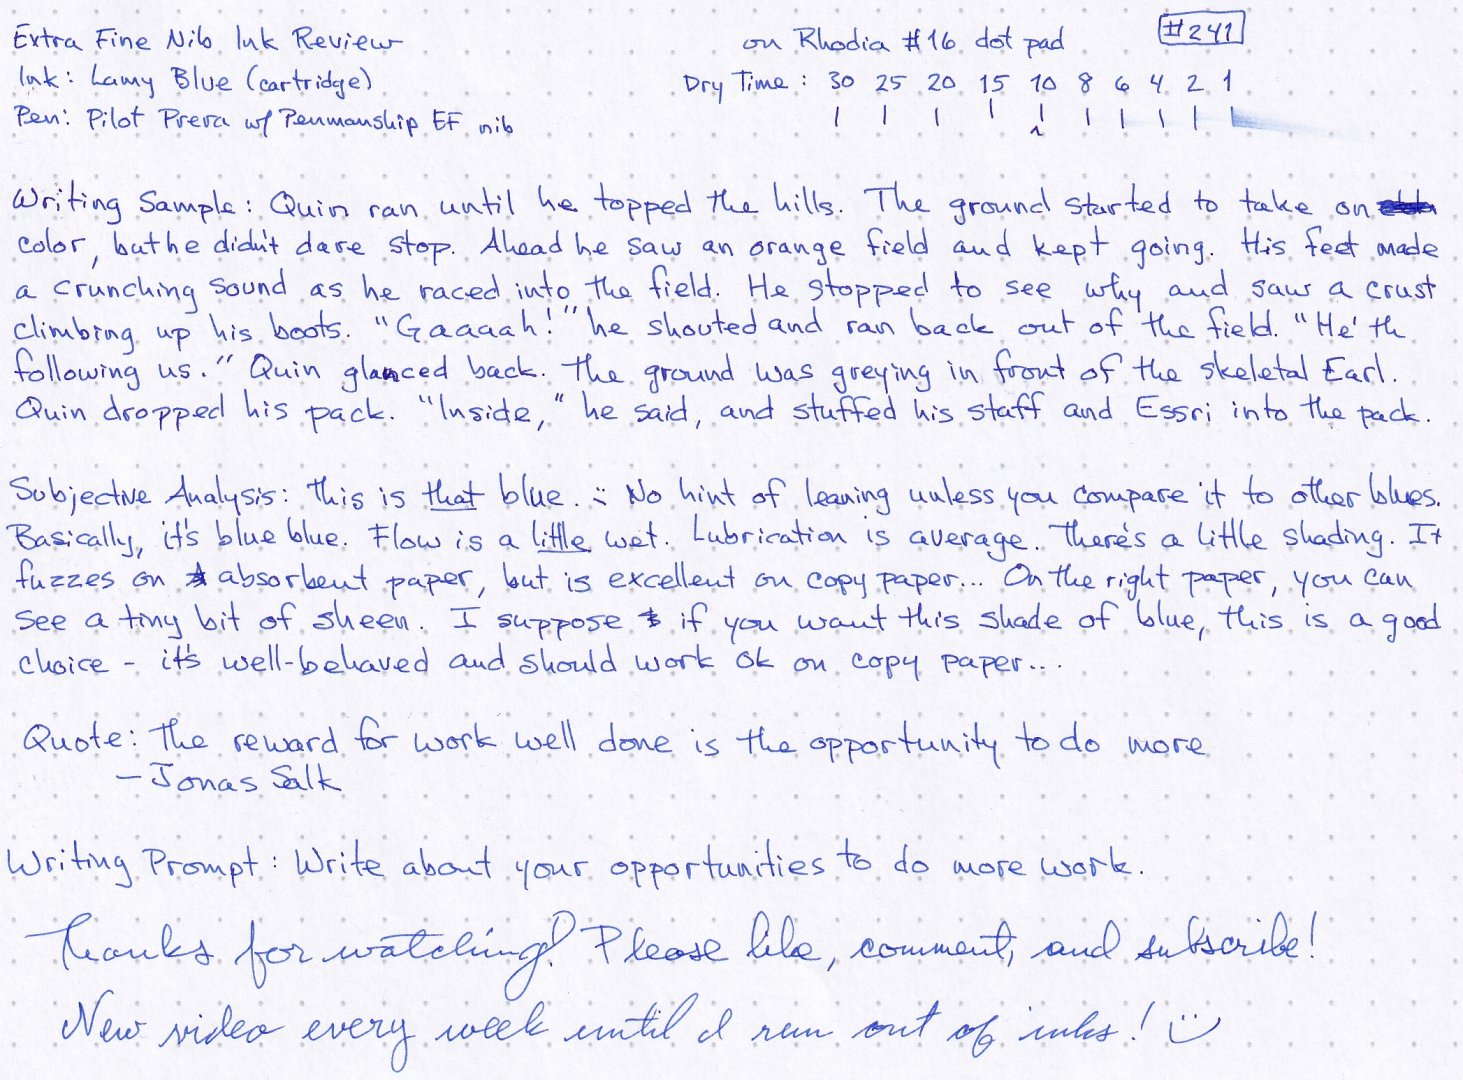 Extra Fine Nib Ink Review
on Rhodia #16 dot pad
#241
Ink: Lamy Blue (cartridge)
Dry Time: 30 25 20 15 10 8 6 4 2 1
Pen: Pilot Prera w/ Penmanship EF nib
Writing Sample: Quin ran until he topped the hills. The ground started to take on
color, but he didn't dare stop. Ahead he saw an orange field and kept going. His feet made
a crunching sound as he raced into the field. He stopped to see why and saw a crust
climbing up his boots. "Gaaaah!" he shouted and ran back out of the field. "He'th
following us." Quin glanced back. The ground was greying in front of the skeletal Earl.
Quin dropped his pack. "Inside," he said, and stuffed his staff and Essri into the pack.
Subjective Analysis: This is that blue. :- No hint of leaning unless you compare it to other blues.
Basically, it's blue blue. Flow is a little wet. Lubrication is average. There's a little shading. It
fuzzes on absorbent paper, but is excellent on copy paper... On the right paper, you can
see a tiny bit of sheen. I suppose if you want this shade of blue, this is a good
choice - it's well-behaved and should work ok on copy paper...
Quote: The reward for work well done is the opportunity to do more
- Jonas Salk
Writing Prompt: Write about your opportunities to do more work.
Thanks for watching! Please like, comment, and subscribe!
New video every week until I run out of inks! :)